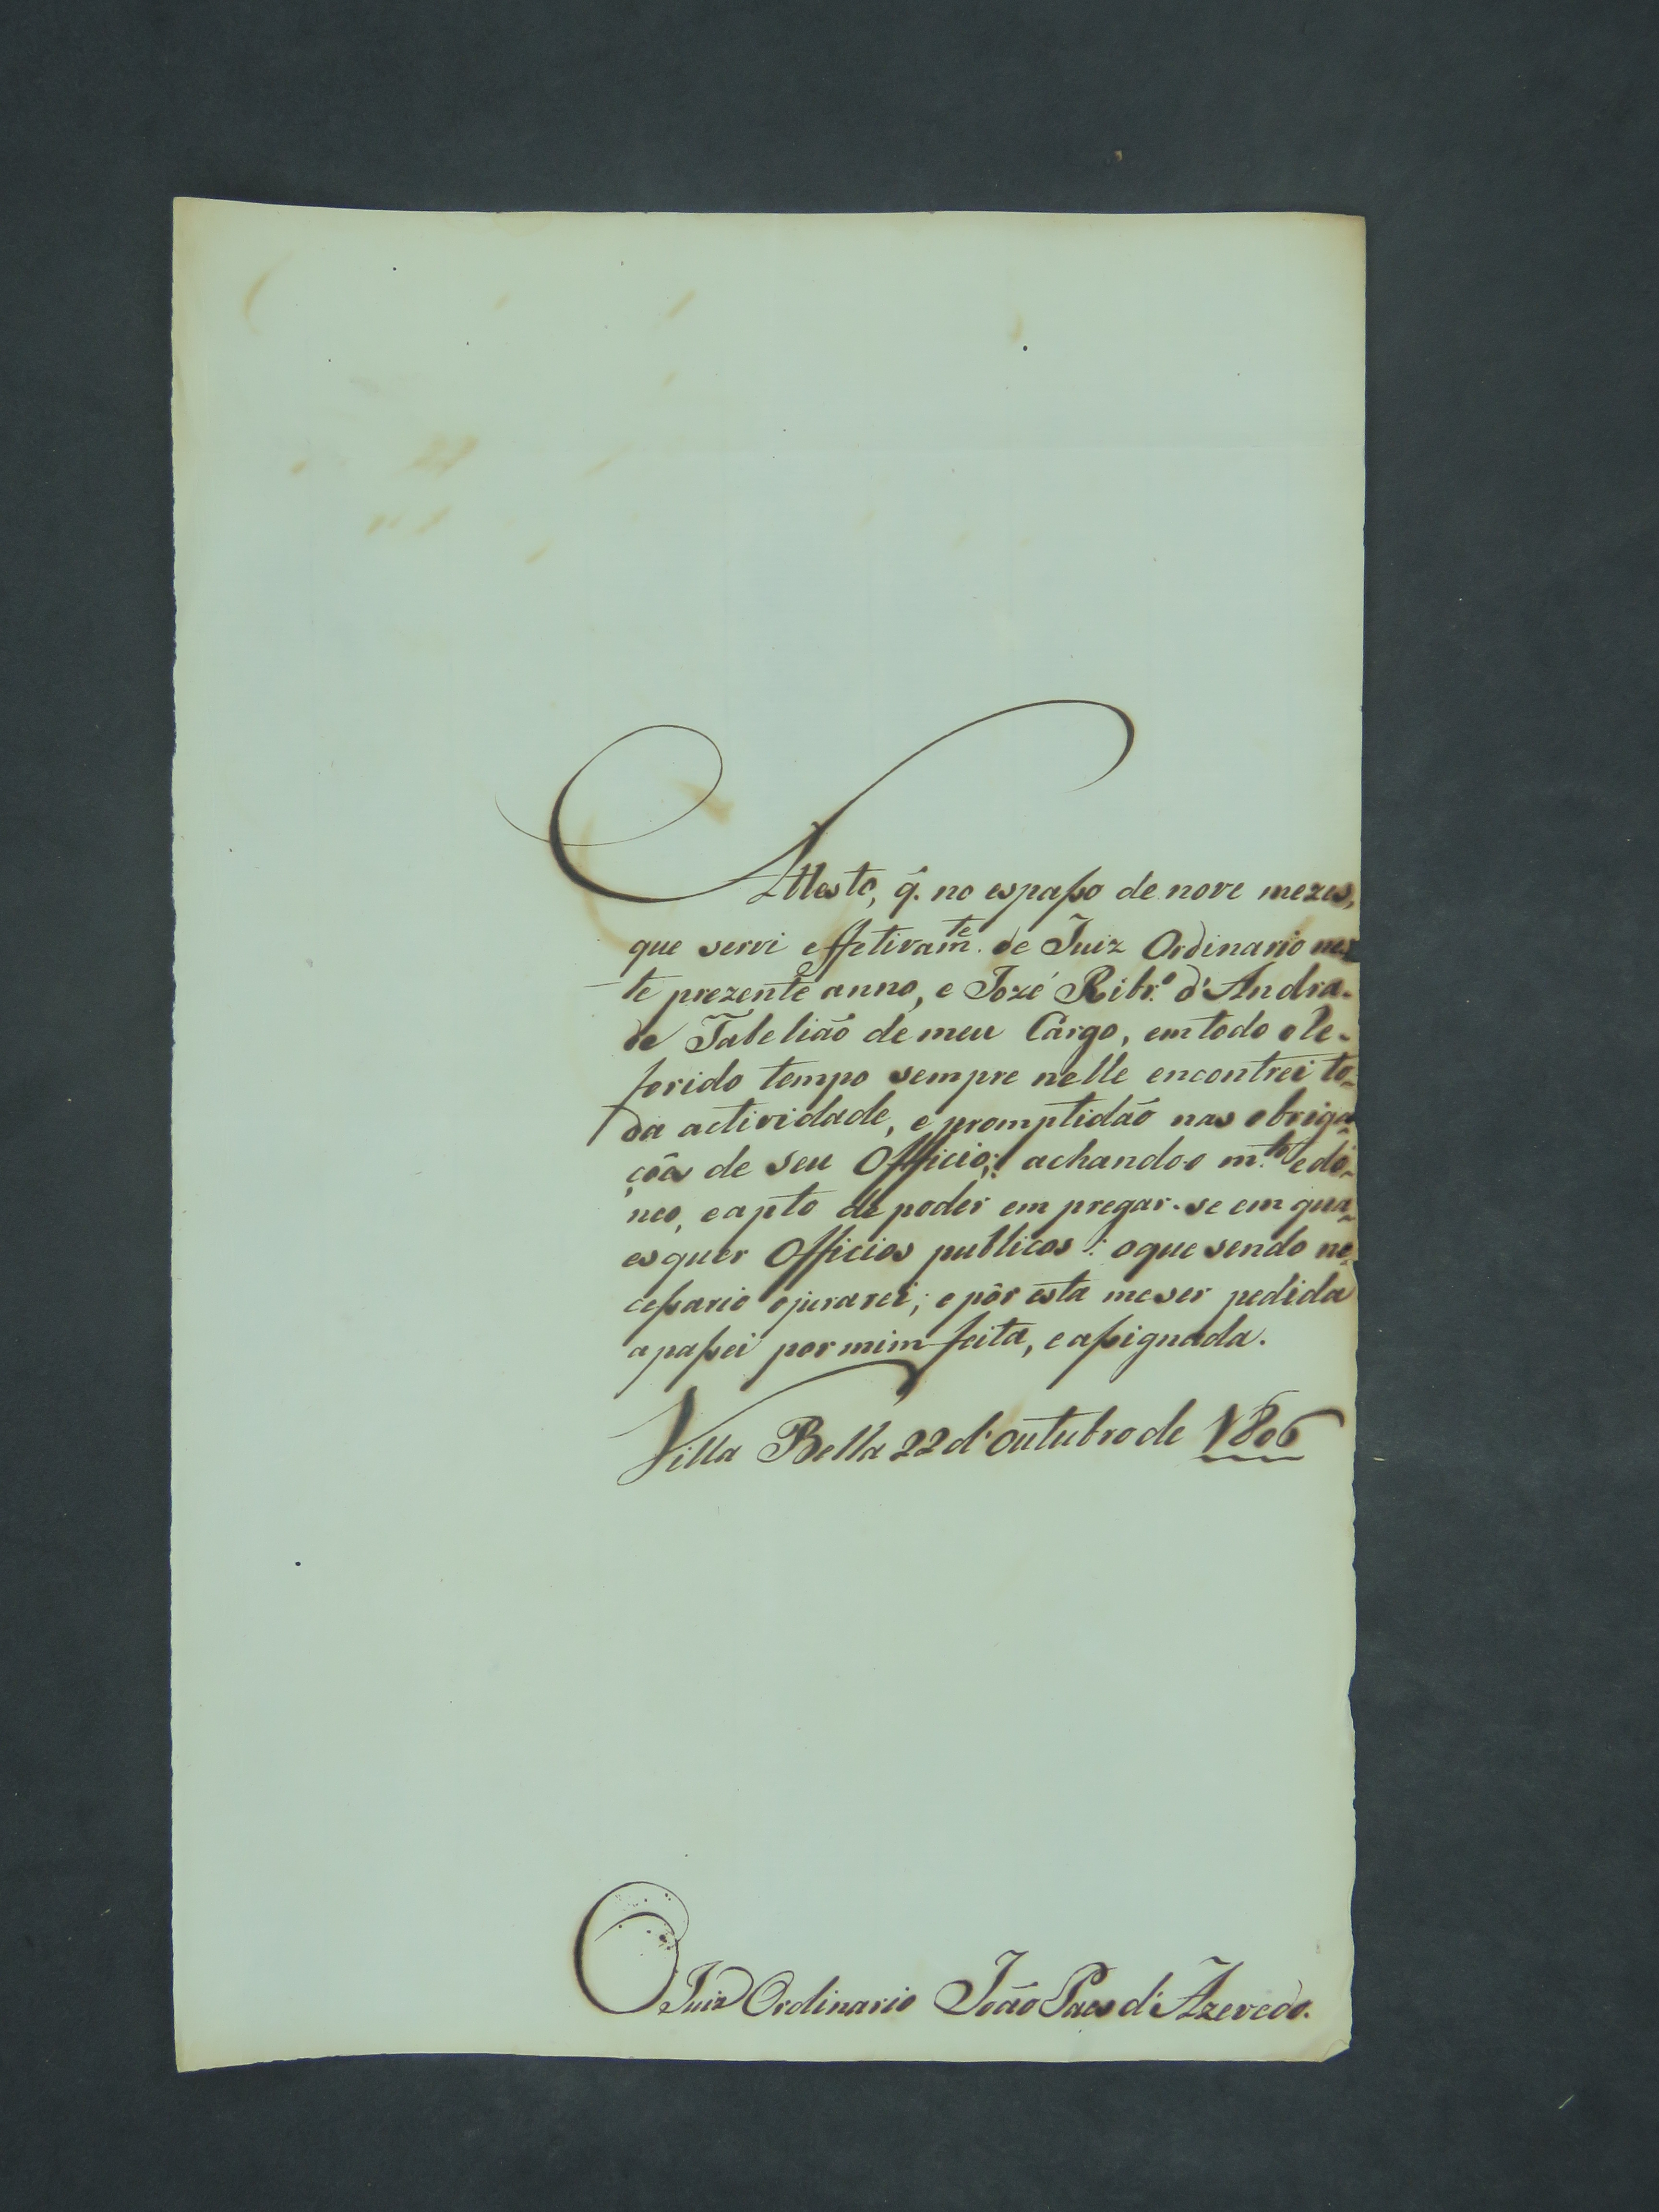 Attesto, q̃. no espaſso de nove mezes,
que servi effetivam.te de Juiz Ordinario nes
te prezente anno, e Jozé Ribr.o d'Andra-
de Tabelião de meu Cargo, em todo o re-
ferido tempo sempre nelle encontrei to-
da actividade, e promptidão nas obriga-
çoẽs de seu Officio; achando-o m.to edo-
neo, e apto de poder em pregar-se em qua-
esquer Officios publicos: o que sendo ne-
ceſsario o jurarei; e pôr esta me ser pedida
a paſsei por mim feita, e aſsignada.
Villa Bella 22 d'Outubro de 1806
O Juiz Ordinario João Paes d'Azevedo.